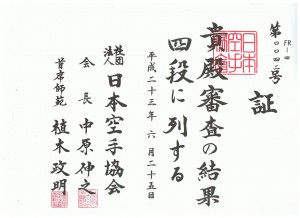 FR-四
第〇〇四二号
証
貴殿審査の結果
四段に列する
平成二十三年六月二十五日
社団法人 日本空手協会
会長 中原伸之
首席師範 植木政明